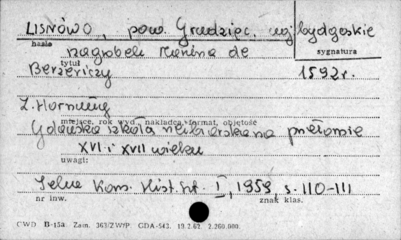 LISNÓWO, pow. Grudziąc, woj. bydgoskie
hasło
nagrobek Kunina de
tytuł sygnatura
Berzeviczy 1592r.
Z. Hornung
miejsce, rok wyd., nakładca, format, objętość
Gdańska szkoła rzeźbiarska na przełomie
XVI i XVII wieku
uwagi:
Teka Kom. Hist. Szt. I, 1959, s. 110-111
nr inw. znak klas.
CWD B-15a Zam. 363/ZWiP GDA-543. 19.2.62. 2.260.000.